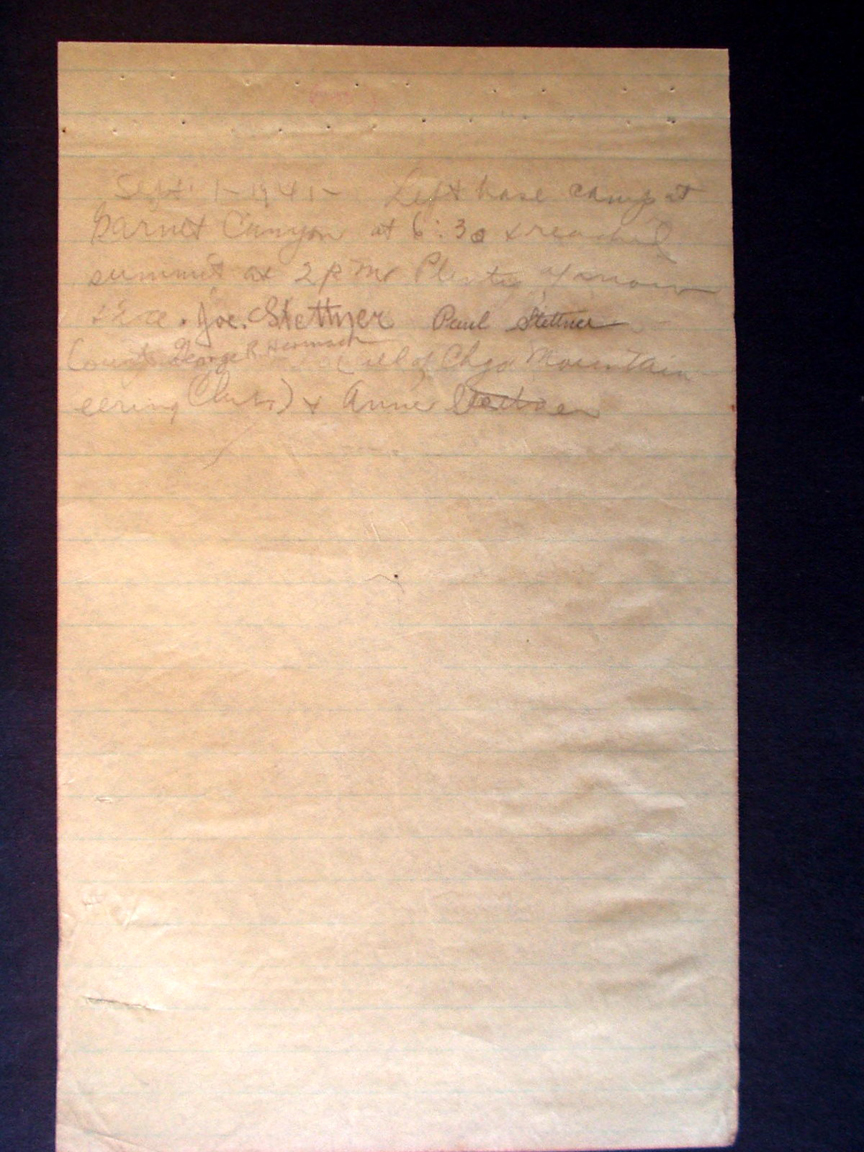 Sept. 1 - 1941 - Left base camp at
Garnet Canyon at 6:30 & reached
summit at 2 P M. Plenty of snow
& ice. Joe. Stettner Paul Stettner
George R Harmsch (all of Chgo Mountain
eering Club) & Anne Stettner